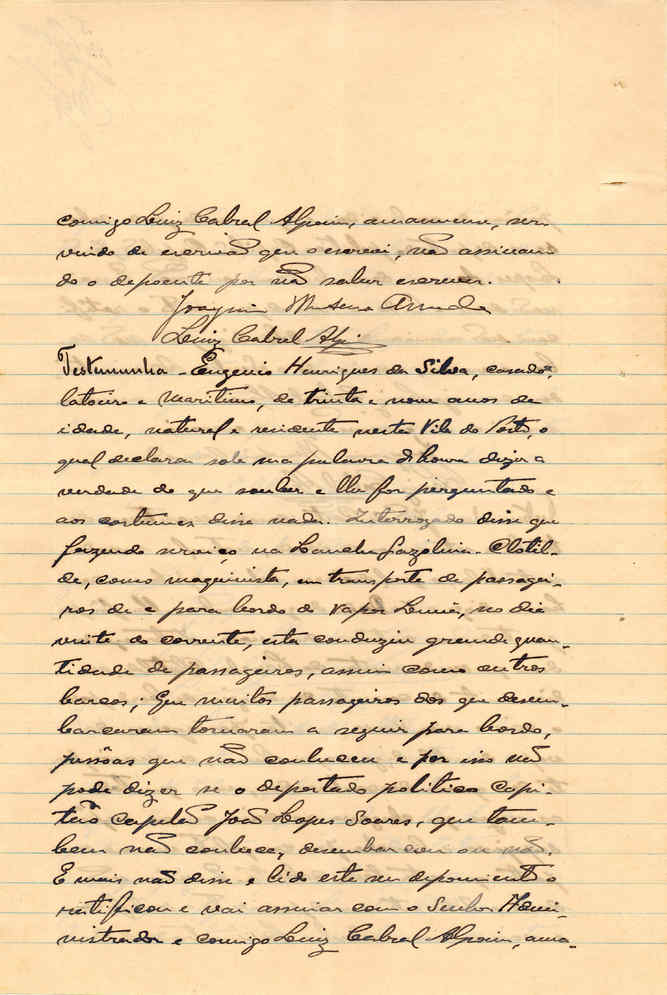 comigo Luiz Cabral Alpoim, amanuense, ser-
vindo de escrivão que o escrevi, não assinan-
do o depoente por não saber escrever.
Joaquim Arruda
Luiz Cabral Alpoim
Testemunha - Eugenio Henriques da Silva, casado,
latoeiro e maritimo, de trinta e nove anos de
idade, natural e residente nesta Vila do Porto, o
qual declarou sob sua palavra d'honra dizer a
verdade do que souber e lhe for perguntado e
aos costumes disse nada. Interrogado disse que
fazendo serviço na Lancha Gazolina - Clotil-
de, como maquinista, em transporte de passagei-
ros de e para bordo do vapor Lima, no dia
vinte do corrente, esta conduziu grande quan-
tidade de passageiros, assim como outros
barcos; Que muitos passageiros dos que desem-
barcaram tornaram a seguir para bordo,
pessôas que não conheceu e por isso não
pode dizer se o deportado politico capi-
tão capelão João Lopes Soares, que tam-
bem não conhece, desembarcou ou não.
E mais não disse e lido este seu depoimento o
ratificou e vai assinar com o Senhor Admi-
nistrador e comigo Luiz Cabral Alpoim, ama-